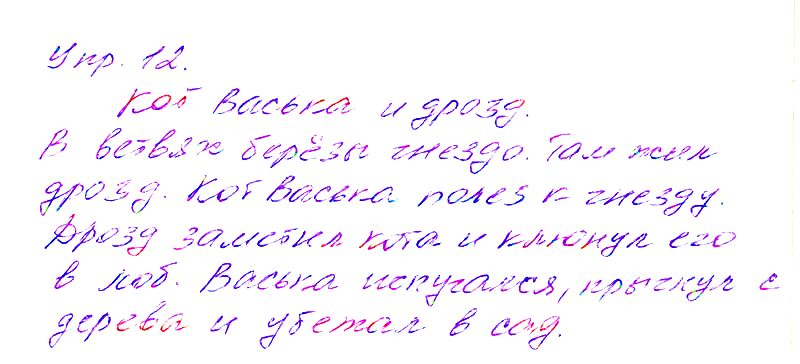 Упр. 12.
Кот Васька и дрозд.
В ветвях берёзы гнездо. Там жил
дрозд. Кот Васька полез к гнезду.
Дрозд заметил кота и клюнул его
в лоб. Васька испугался, прыгнул с
дерева и убежал в сад.